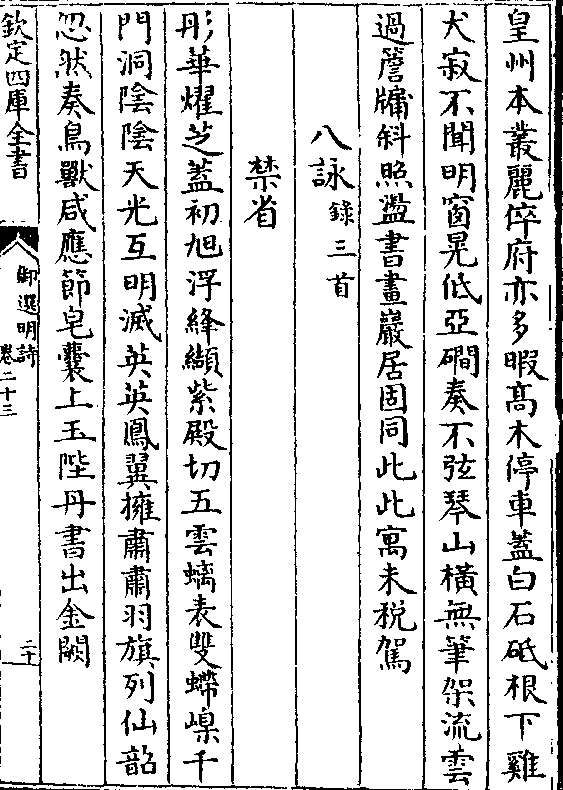 皇州本叢麗倅府亦多暇髙木停車蓋白石砥根下雞
犬寂不聞明窗晃低亞磵奏不弦琴山橫無筆架流雲
過簷牖斜照濫書畫巖居固同此此寓未税駕
八詠錄三首
禁省
彤華燿芝蓋初旭浮絳纈紫殿切五雲螭表雙嵽嵲千
門洞陰陰天光互明滅英英鳳翼擁肅肅羽旗列仙韶
忽然奏鳥獸咸應節皂囊上玉陛丹書出金闕
欽定四庫全書
御選明詩
卷二十三
二十